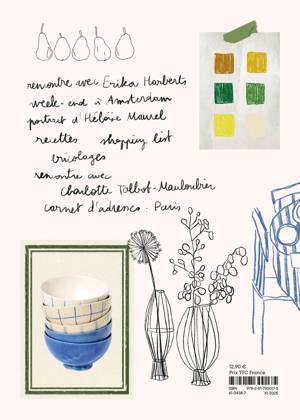 rencontre avec Erika Harberts
week-end à Amsterdam
portrait d'Héloïse Mauvel
recettes shopping list
bricolages
rencontre avec
Charlotte Talbot-Mauloubier
carnet d'adresses : Paris
12,90 €
Prix TTC France
ISBN